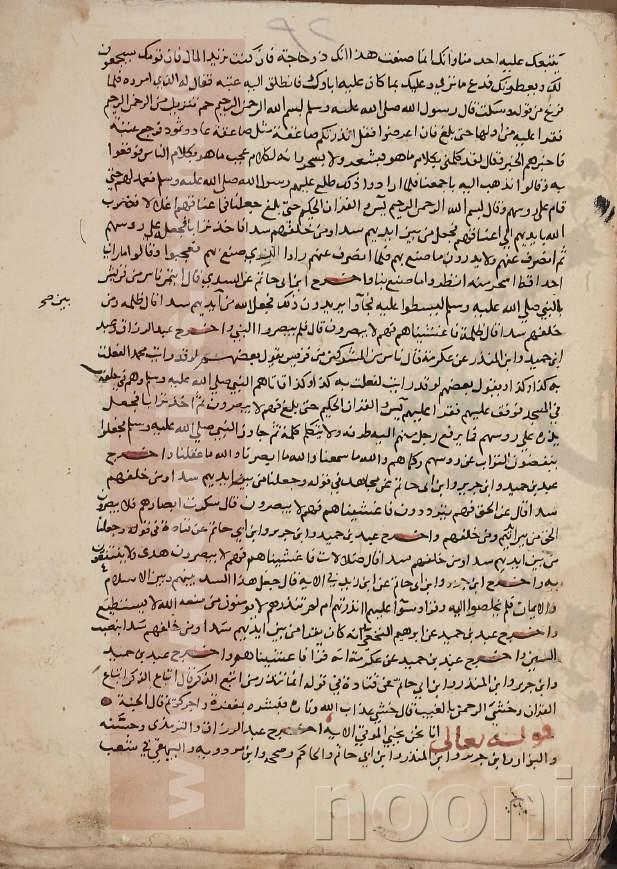 يتبعك عليه احد منا وانك انما صنعت هذا انك ذو حاجة فان كنت تريد المال فان قومك سيجمعون
لك ويعطونك فدع ما ترى وعليك بما كان عليه اباؤك فانطلق اليه عتبة فقال له الذي امروه فلما
فرغ من قوله وسكت قال رسول الله صلى الله عليه وسلم بسم الله الرحمن الرحيم حم تنزيل من الرحمن الرحيم
فقرا عليه من اولها حتى بلغ فان اعرضوا فقل انذرتكم صاعقة مثل صاعقة عاد وثمود فرجع عتبة
فاخبرهم الخبر فقال لقد كلمني بكلام ما هو بشعر ولا بسحر وانه لكلام عجيب ما هو بكلام الناس فوقعوا
به وقالوا نذهب اليه باجمعنا فلما ارادوا ذلك طلع عليهم رسول الله صلى الله عليه وسلم فعمد لهم حتى
قام على روسهم وقال بسم الله الرحمن الرحيم يس والقران الحكيم حتى بلغ جعلنا في اعناقهم اغلالا فضرب
الله بايديهم الى اعناقهم فجعل من بين ايديهم سدا ومن خلفهم سدا فاخذ ترابا فجعله على روسهم
ثم انصرف عنهم ولا يدرون ما صنع بهم فلما انصرف عنهم راوا الذي صنع بهم فعجبوا وقالوا ما راينا
احدا قط اسحر منه انظروا ما صنع بنا واخرج ابن ابي حاتم عن السدي قال ائتمر ناس من قريش
بالنبي صلى الله عليه وسلم ليسطوا عليه فجاؤا يريدون ذلك فجعل الله من ايديهم سدا قال ظلمة ومن
بين صح
خلفهم سدا قال ظلمة فاغشيناهم فهم لا يبصرون قال فلم يبصروا النبي واخرج عبد الرزاق وعبد
ابن حميد وابن المنذر عن عكرمة قال ناس من المشركين من قريش يقول بعضهم لو قد رايت محمدا لفعلت
به كذا وكذا ويقول بعضهم لو قد رايته لفعلت به كذا وكذا فاتاهم النبي صلى الله عليه وسلم وهم في حلقة
في المسجد فوقف عليهم فقرا عليهم يس والقران الحكيم حتى بلغ فهم لا يبصرون ثم اخذ ترابا فجعل
يذره على روسهم فما يرفع رجل منهم اليه طرفه ولا يتكلم كلمة ثم جاوز النبي صلى الله عليه وسلم فجعلوا
ينفضون التراب عن روسهم ولحاهم والله ما سمعنا والله ما ابصرنا والله ما عقلنا واخرج
عبد بن حميد وابن جرير وابن ابي حاتم عن مجاهد في قوله وجعلنا من بين ايديهم سدا ومن خلفهم
سدا قال عن الحق فهم يترددون فاغشيناهم فهم لا يبصرون قال
واخرج عبد بن حميد وابن جرير وابن ابي حاتم عن قتادة في قوله وجعلنا
من بين ايديهم سدا ومن خلفهم سدا قال ضلالات فاغشيناهم فهم لا يبصرون هدى ولا ينتفعون
به واخرج ابن جرير وابن ابي حاتم عن ابن زيد في الاية قال جعل هذا السد بينهم وبين الاسلام
والايمان فلم يخلصوا اليه وقرا وسوا عليهم اانذرتهم ام لم تنذرهم لا يؤمنون من منعه الله لا يستطيع
واخرج عبد بن حميد عن ابرهيم النخعي انه كان يقرا من بين ايديهم سدا ومن خلفهم سدا بنصب
السين واخرج عبد بن حميد عن عكرمة انه قرا فاغشيناهم واخرج عبد بن حميد
وابن جرير وابن المنذر وابن ابي حاتم عن قتادة في قوله انما تنذر من اتبع الذكر قال اتباع الذكر اتباع
القران وخشي الرحمن بالغيب قال خشي عذاب الله وناره فبشره بمغفرة واجر كريم قال الجنة
قوله تعالى انا نحن نحيي الموتى الاية اخرج عبد الرزاق والترمذي وحسنه
والبزار وابن جرير وابن المنذر وابن ابي حاتم والحاكم وصححه وابن مردويه والبيهقي في شعب
noonin